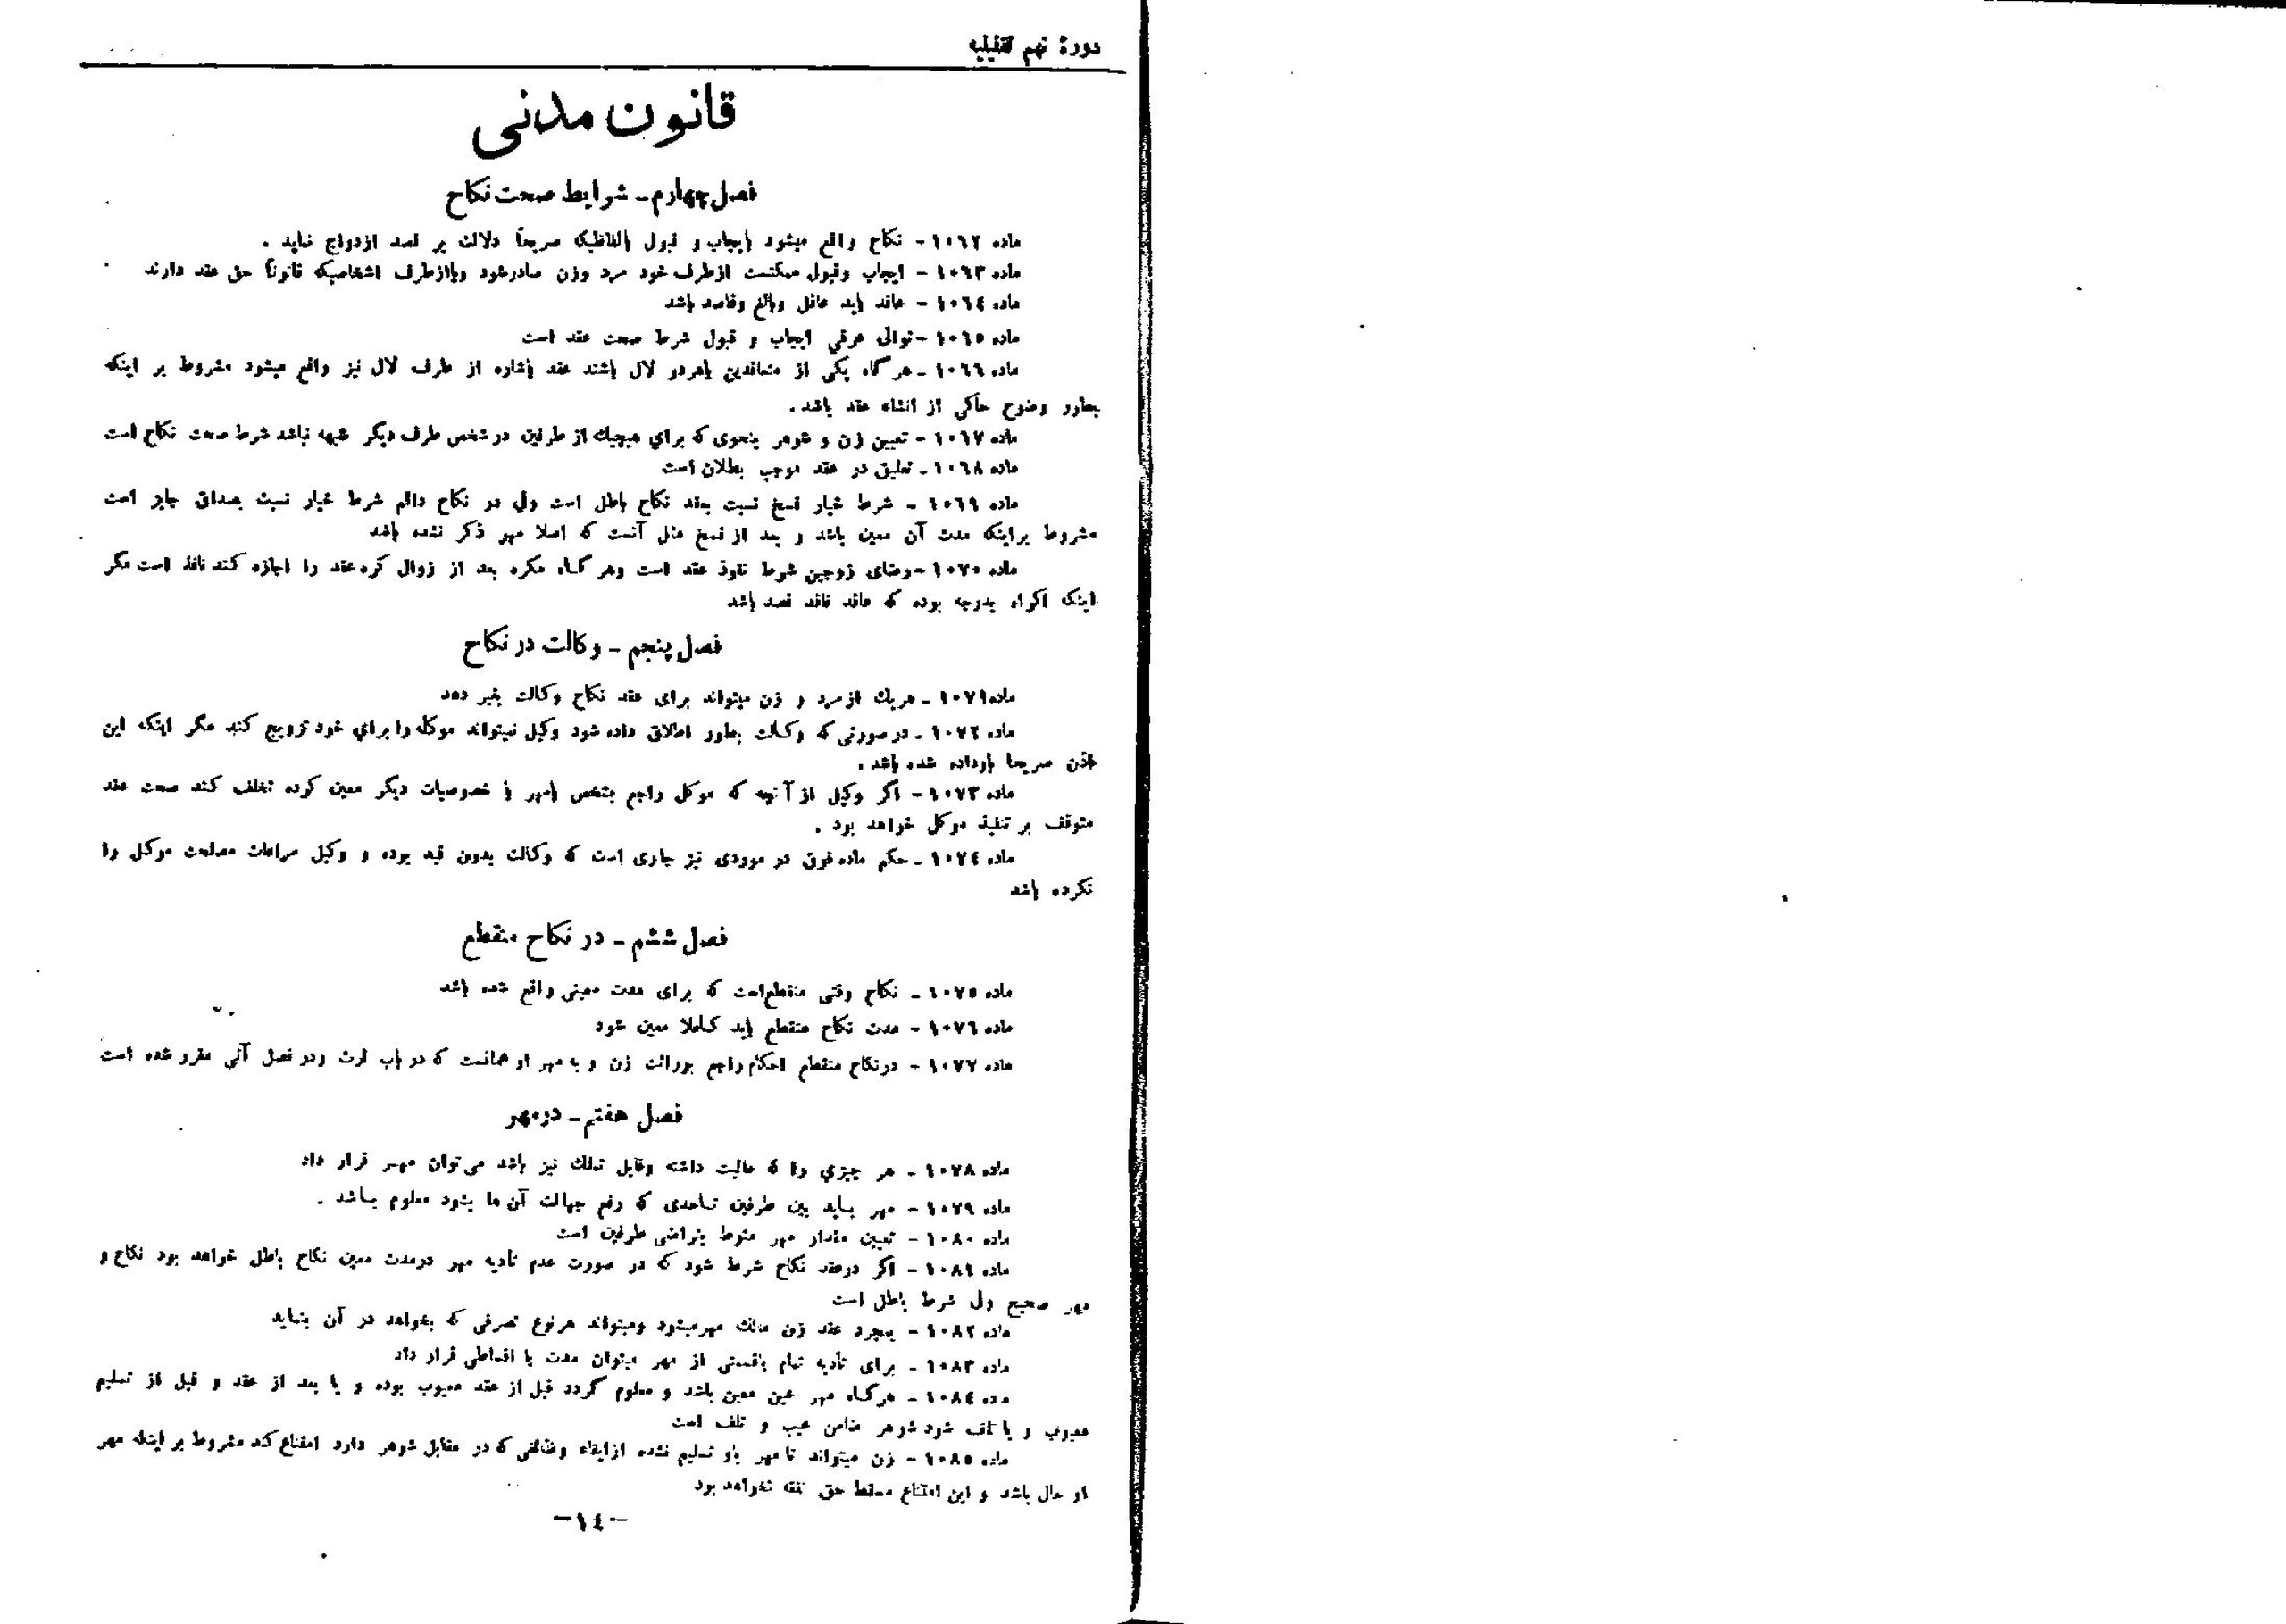 دورهٔ نهم تقنینیه
قانون مدنی
فصل چهارم ـ شرایط صحت نکاح
ماده ۱۰٦۲ - نکاح واقع میشود بایجاب و قبول بالفاظیکه صریحاً دلالت بر قصد ازدواج نماید .
ماده ۱۰٦۳ - ایجاب وقبول ممکنست ازطرف خود مرد وزن صادرشود ویاازطرف اشخاصیکه قانوناً حق عقد دارند
ماده ۱۰٦٤ - عاقد باید عاقل وبالغ وقاصد باشد
ماده ۱۰٦٥ - توالی عرفی ایجاب و قبول شرط صحت عقد است
ماده ۱۰٦٦ ـ هر گاه یکی از متعاقدین یاهردو لال باشند عقد باشاره از طرف لال نیز واقع میشود مشروط بر اینکه
بطور وضوح حاکی از انشاء عقد باشد .
ماده ۱۰٦۷ - تعیین زن و شوهر بنحوی که برای هیچیك از طرفین در شخص طرف دیگر شبهه نباشد شرط صحت نکاح است
ماده ۱۰٦۸ ـ تعلیق در عقد موجب بطلان است
ماده ۱۰٦۹ - شرط خیار فسخ نسبت بعقد نکاح باطل است ولی در نکاح دائم شرط خیار نسبت بصداق جایز است
مشروط براینکه مدت آن معین باشد و بعد از فسخ مثل آنست که اصلا مهر ذکر نشده باشد
ماده ۱۰۷۰ - رضای زوجین شرط نفوذ عقد است وهر گاه مکره بعد از زوال کره عقد را اجازه کند نافذ است مگر
اینکه اکراه بدرجه بوده که عاقد فاقد قصد باشد
فصل پنجم ـ وکالت در نکاح
ماده ۱۰۷۱ ـ هریك ازمرد و زن میتواند برای عقد نکاح وکالت بغیر دهد
ماده ۱۰۷۲ ـ در صورتی که وکالت بطور اطلاق داده شود وکیل نمیتواند موکله را برای خود تزویج کند مگر اینکه این
اذن صریحا باوداده شده باشد .
ماده ۱۰۷۳ - اگر وکیل از آنچه که موکل راجع بشخص یامهر یا خصوصیات دیگر معین کرده تخلف کند صحت عقد
متوقف بر تنفیذ موکل خواهد بود .
ماده ۱۰۷٤ ـ حکم ماده فوق در موردی نیز جاری است که وکالت بدون قید بوده و وکیل مراعات مصلحت موکل را
نکرده باشد
فصل ششم ـ در نکاح منقطع
ماده ۱۰۷٥ ـ نکاح وقتی منقطع‌است که برای مدت معینی واقع شده باشد
ماده ۱۰۷٦ - مدت نکاح منقطع باید کاملا معین شود
ماده ۱۰۷۷ - درنکاح منقطع احکام راجع بوراثت زن و به مهر او همانست که در باب ارث ودر فصل آتی مقرر شده است
فصل هفتم ـ درمهر
ماده ۱۰۷۸ ـ هر چیزی را که مالیت داشته وقابل تملك نیز باشد می‌توان مهر قرار داد
ماده ۱۰۷۹ - مهر باید بین طرفین تاحدی که رفع جهالت آن ها بشود معلوم باشد .
ماده ۱۰۸۰ - تعیین مقدار مهر منوط بتراضی طرفین است
ماده ۱۰۸۱ - اگر درعقد نکاح شرط شود که در صورت عدم تأدیه مهر درمدت معین نکاح باطل خواهد بود نکاح و
مهر صحیح ولی شرط باطل است
ماده ۱۰۸۲ - بمجرد عقد زن مالك مهرمیشود ومیتواند هرنوع تصرفی که بخواهد در آن بنماید
ماده ۱۰۸۳ - برای تأدیه تمام یاقسمتی از مهر میتوان مدت یا اقساطی قرار داد
ماده ۱۰۸٤ - هرگاه مهر عین معین باشد و معلوم گردد قبل از عقد معیوب بوده و یا بعد از عقد و قبل از تسلیم
معیوب و یا تلف شود شوهر ضامن عیب و تلف است
ماده ۱۰۸٥ - زن میتواند تا مهر باو تسلیم نشده ازایفاء وظائفی که در مقابل شوهر دارد امتناع کند مشروط بر اینکه مهر
او حال باشد و این امتناع مسقط حق نفقه نخواهد بود
-۱٤-